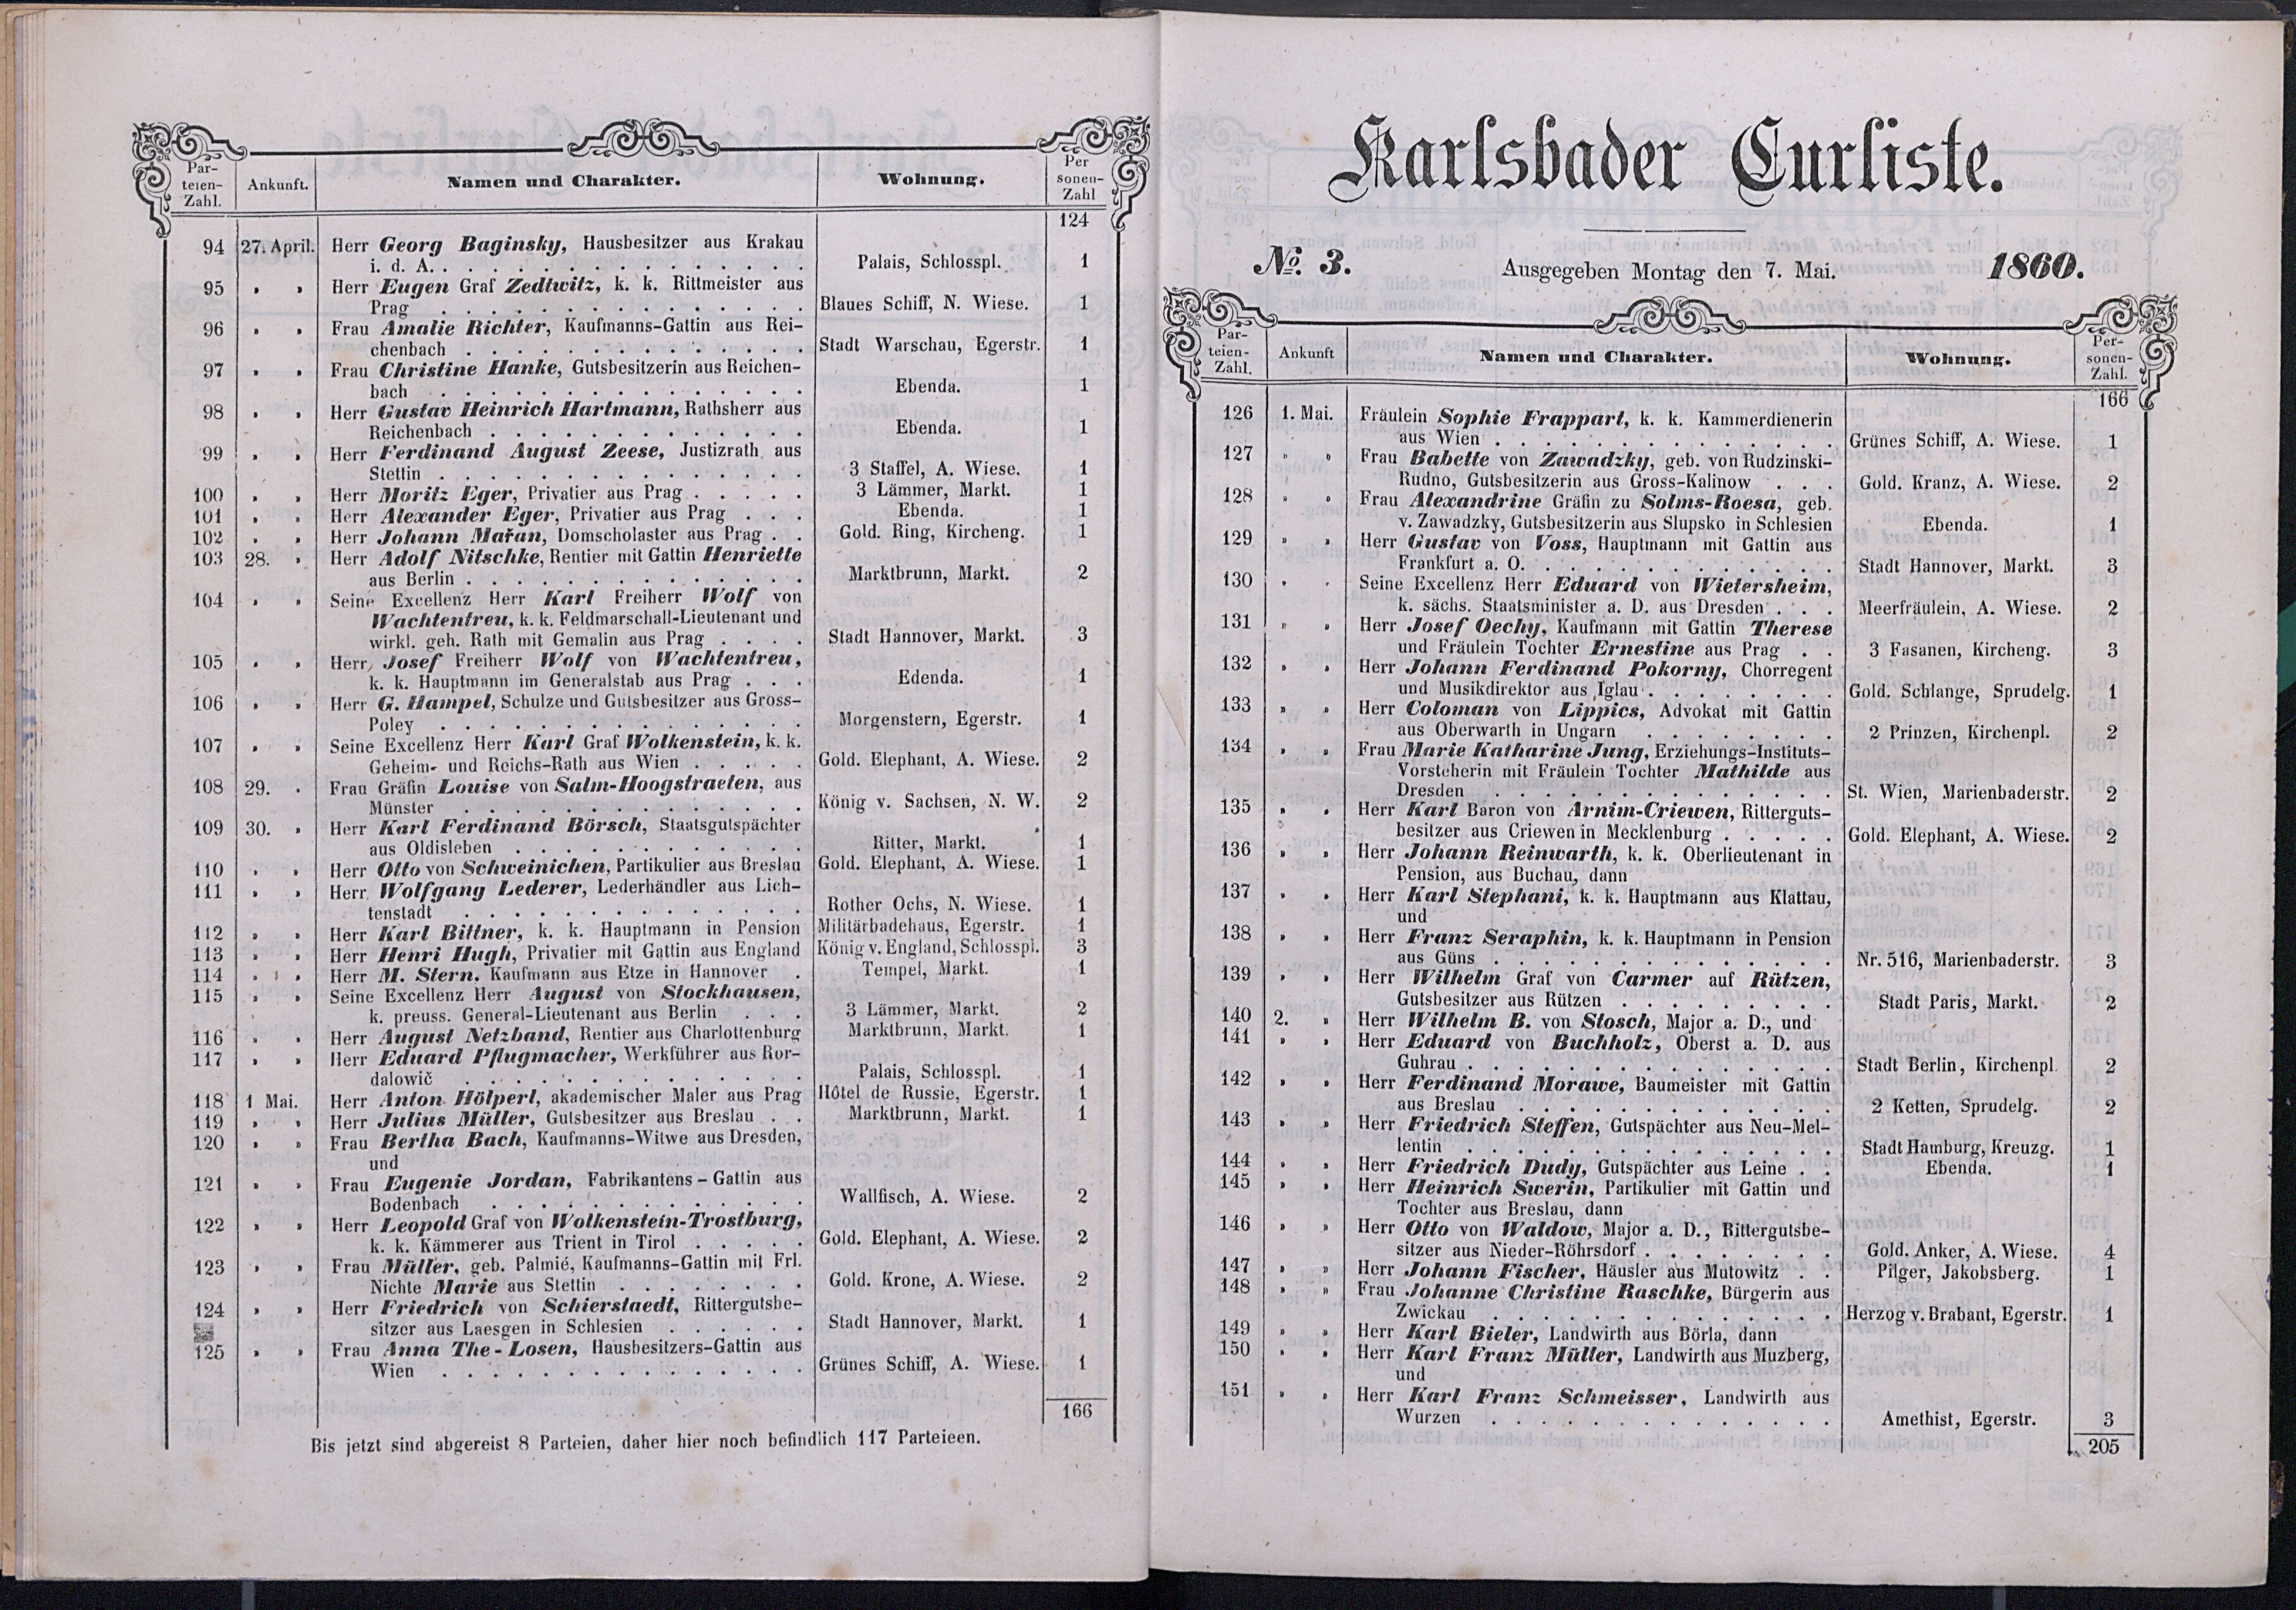 Par-
teien-
Zahl.
Ankunft.
Namen und Charakter.
Wohnung.
Per
sonen-
Zahl
124
94 27. April. Herr Georg Baginsky, Hausbesitzer aus Krakau
i. d. A. . . . . . . . . . . . . . . . Palais, Schlosspl. 1
95 „ „ Herr Eugen Graf Zedtwitz, k. k. Rittmeister aus
Prag . . . . . . . . . . . . . . . Blaues Schiff, N. Wiese. 1
96 „ „ Frau Amalie Richter, Kaufmanns-Gattin aus Rei-
chenbach . . . . . . . . . . . . . Stadt Warschau, Egerstr. 1
97 „ „ Frau Christine Hanke, Gutsbesitzerin aus Reichen-
bach . . . . . . . . . . . . . . . Ebenda. 1
98 „ „ Herr Gustav Heinrich Hartmann, Rathsherr aus
Reichenbach . . . . . . . . . . . . Ebenda. 1
99 „ „ Herr Ferdinand August Zeese, Justizrath aus
Stettin . . . . . . . . . . . . . . 3 Staffel, A. Wiese. 1
100 „ „ Herr Moritz Eger, Privatier aus Prag . . . . . 3 Lämmer, Markt. 1
101 „ „ Herr Alexander Eger, Privatier aus Prag . . . Ebenda. 1
102 „ „ Herr Johann Mařan, Domscholaster aus Prag . . Gold. Ring, Kircheng. 1
103 28. „ Herr Adolf Nitschke, Rentier mit Gattin Henriette
aus Berlin . . . . . . . . . . . . . Marktbrunn, Markt. 2
104 „ „ Seine Excellenz Herr Karl Freiherr Wolf von
Wachtentreu, k. k. Feldmarschall-Lieutenant und
wirkl. geh. Rath mit Gemalin aus Prag . . . . Stadt Hannover, Markt. 3
105 „ „ Herr Josef Freiherr Wolf von Wachtentreu,
k. k. Hauptmann im Generalstab aus Prag . . . Edenda. 1
106 „ „ Herr G. Hampel, Schulze und Gutsbesitzer aus Gross-
Poley . . . . . . . . . . . . . . . Morgenstern, Egerstr. 1
107 „ „ Seine Excellenz Herr Karl Graf Wolkenstein, k. k.
Geheim- und Reichs-Rath aus Wien . . . . . Gold. Elephant, A. Wiese. 2
108 29. „ Frau Gräfin Louise von Salm-Hoogstraeten, aus
Münster . . . . . . . . . . . . . . König v. Sachsen, N. W. 2
109 30. „ Herr Karl Ferdinand Börsch, Staatsgutspächter
aus Oldisleben . . . . . . . . . . . Ritter, Markt. 1
110 „ „ Herr Otto von Schweinichen, Partikulier aus Breslau Gold. Elephant, A. Wiese. 1
111 „ „ Herr Wolfgang Lederer, Lederhändler aus Lich-
tenstadt . . . . . . . . . . . . . . Rother Ochs, N. Wiese. 1
112 „ „ Herr Karl Bittner, k. k. Hauptmann in Pension Militärbadehaus, Egerstr. 1
113 „ „ Herr Henri Hugh, Privatier mit Gattin aus England König v. England, Schlosspl. 3
114 „ „ Herr M. Stern. Kaufmann aus Etze in Hannover . Tempel, Markt. 1
115 „ „ Seine Excellenz Herr August von Stockhausen,
k. preuss. General-Lieutenant aus Berlin . . . 3 Lämmer, Markt. 2
116 „ „ Herr August Netzband, Rentier aus Charlottenburg Marktbrunn, Markt. 1
117 „ „ Herr Eduard Pflugmacher, Werkführer aus Ror-
dalowič . . . . . . . . . . . . . . Palais, Schlosspl. 1
118 1 Mai. Herr Anton Hölperl, akademischer Maler aus Prag Hôtel de Russie, Egerstr. 1
119 „ „ Herr Julius Müller, Gutsbesitzer aus Breslau . . Marktbrunn, Markt. 1
120 „ „ Frau Bertha Bach, Kaufmanns-Witwe aus Dresden,
und
121 „ „ Frau Eugenie Jordan, Fabrikantens-Gattin aus
Bodenbach . . . . . . . . . . . . . Wallfisch, A. Wiese. 2
122 „ „ Herr Leopold Graf von Wolkenstein-Trostburg,
k. k. Kämmerer aus Trient in Tirol . . . . . Gold. Elephant, A. Wiese. 2
123 „ „ Frau Müller, geb. Palmié, Kaufmanns-Gattin mit Frl.
Nichte Marie aus Stettin . . . . . . . . Gold. Krone, A. Wiese. 2
124 „ „ Herr Friedrich von Schierstaedt, Rittergutsbe-
sitzer aus Laesgen in Schlesien . . . . . . Stadt Hannover, Markt. 1
125 „ „ Frau Anna The-Losen, Hausbesitzers-Gattin aus
Wien . . . . . . . . . . . . . . . Grünes Schiff, A. Wiese. 1
166
Bis jetzt sind abgereist 8 Parteien, daher hier noch befindlich 117 Parteieen.
Karlsbader Curliste.
No. 3.
Ausgegeben Montag den 7. Mai.
1860.
Par-
teien-
Zahl.
Ankunft
Namen und Charakter.
Wohnung.
Per-
sonen-
Zahl.
166
126 1. Mai. Fräulein Sophie Frappart, k. k. Kammerdienerin
aus Wien . . . . . . . . . . . . . Grünes Schiff, A. Wiese. 1
127 „ „ Frau Babette von Zawadzky, geb. von Rudzinski-
Rudno, Gutsbesitzerin aus Gross-Kalinow . . . Gold. Kranz, A. Wiese. 2
128 „ „ Frau Alexandrine Gräfin zu Solms-Roesa, geb.
v. Zawadzky, Gutsbesitzerin aus Slupsko in Schlesien Ebenda. 1
129 „ „ Herr Gustav von Voss, Hauptmann mit Gattin aus
Frankfurt a. O. . . . . . . . . . . . . Stadt Hannover, Markt. 3
130 „ „ Seine Excellenz Herr Eduard von Wietersheim,
k. sächs. Staatsminister a. D. aus Dresden . . . Meerfräulein, A. Wiese. 2
131 „ „ Herr Josef Oechy, Kaufmann mit Gattin Therese
und Fräulein Tochter Ernestine aus Prag . . 3 Fasanen, Kircheng. 3
132 „ „ Herr Johann Ferdinand Pokorny, Chorregent
und Musikdirektor aus Iglau . . . . . . . . Gold. Schlange, Sprudelg. 1
133 „ „ Herr Coloman von Lippics, Advokat mit Gattin
aus Oberwarth in Ungarn . . . . . . . . 2 Prinzen, Kirchenpl. 2
134 „ „ Frau Marie Katharine Jung, Erziehungs-Instituts-
Vorsteherin mit Fräulein Tochter Mathilde aus
Dresden . . . . . . . . . . . . . . St. Wien, Marienbaderstr. 2
135 „ „ Herr Karl Baron von Arnim-Criewen, Ritterguts-
besitzer aus Criewen in Mecklenburg . . . . . Gold. Elephant, A. Wiese. 2
136 „ „ Herr Johann Reinwarth, k. k. Oberlieutenant in
Pension, aus Buchau, dann
137 „ „ Herr Karl Stephani, k. k. Hauptmann aus Klattau,
und
138 „ „ Herr Franz Seraphin, k. k. Hauptmann in Pension
aus Güns . . . . . . . . . . . . . Nr. 516, Marienbaderstr. 3
139 „ „ Herr Wilhelm Graf von Carmer auf Rützen,
Gutsbesitzer aus Rützen . . . . . . . . . Stadt Paris, Markt. 2
140 2. „ Herr Wilhelm B. von Stosch, Major a. D., und
141 „ „ Herr Eduard von Buchholz, Oberst a. D. aus
Guhrau . . . . . . . . . . . . . . Stadt Berlin, Kirchenpl. 2
142 „ „ Herr Ferdinand Morawe, Baumeister mit Gattin
aus Breslau . . . . . . . . . . . . 2 Ketten, Sprudelg. 2
143 „ „ Herr Friedrich Steffen, Gutspächter aus Neu-Mel-
lentin . . . . . . . . . . . . . . Stadt Hamburg, Kreuzg. 1
144 „ „ Herr Friedrich Dudy, Gutspächter aus Leine . . Ebenda. 1
145 „ „ Herr Heinrich Swerin, Partikulier mit Gattin und
Tochter aus Breslau, dann
146 „ „ Herr Otto von Waldow, Major a. D., Rittergutsbe-
sitzer aus Nieder-Röhrsdorf . . . . . . . . Gold. Anker, A. Wiese. 4
147 „ „ Herr Johann Fischer, Häusler aus Mutowitz . . Pilger, Jakobsberg. 1
148 „ „ Frau Johanne Christine Raschke, Bürgerin aus
Zwickau . . . . . . . . . . . . . . Herzog v. Brabant, Egerstr. 1
149 „ „ Herr Karl Bieler, Landwirth aus Börla, dann
150 „ „ Herr Karl Franz Müller, Landwirth aus Muzberg,
und
151 „ „ Herr Karl Franz Schmeisser, Landwirth aus
Wurzen . . . . . . . . . . . . . . Amethist, Egerstr. 3
205